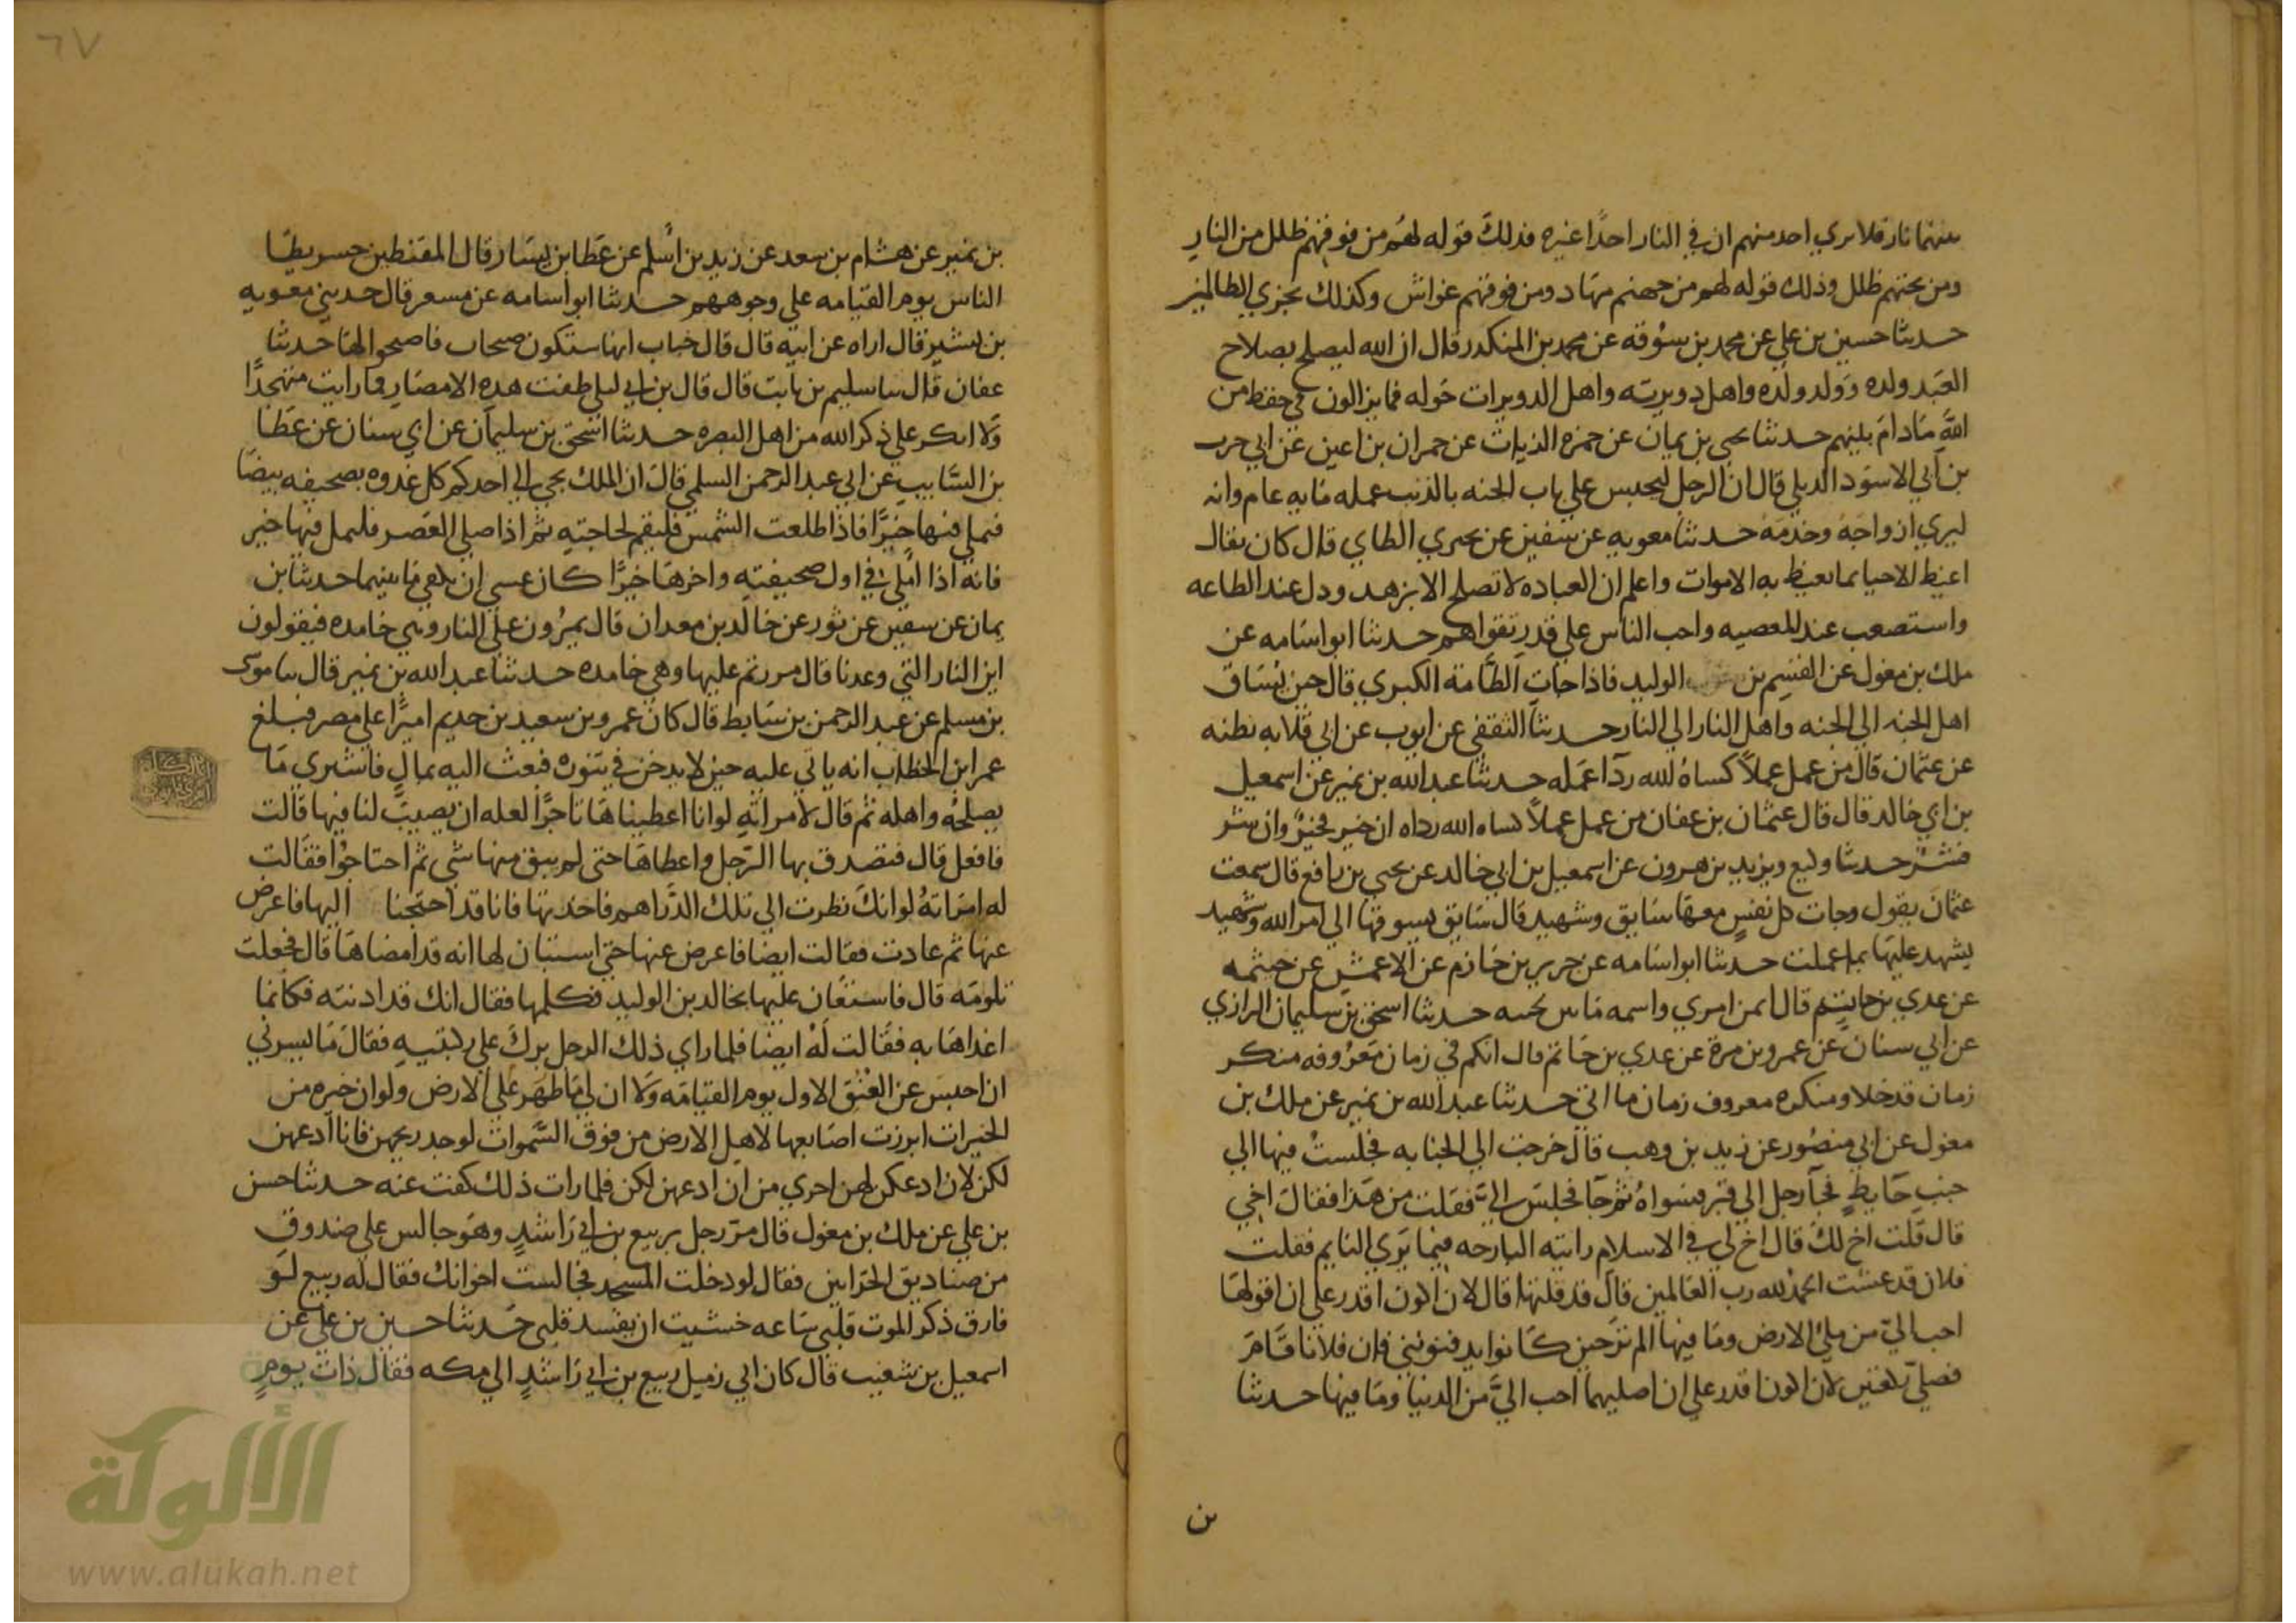 بينهما نار فلا يري احد منهم ان في النار احدا غيره فذلك قوله لهم من فوقهم ظلل من النار
ومن تحتهم ظلل وذلك قوله لهم من جهنم مهاد ومن فوقهم غواش وكذلك نجزي الظالمين
حدثنا حسين بن علي عن محمد بن سوقه عن محمد بن المنكدر قال ان الله ليصلح بصلاح
العبد ولده وولد ولده واهل دويرته واهل الدويرات حوله فما يزالون في حفظ من
الله ما دام بينهم حدثنا يحيي بن يمان عن حمزه الزيات عن حمران بن اعين عن ابي حرب
بن ابي الاسود الديلي قال ان الرجل ليحبس علي باب الجنه بالذنب عمله مايه عام وانه
ليري ازواجه وخدمه حدثنا معويه عن سفين عن بحري الطاي قال كان يقال
اغبط الاحيا بما يغبط به الاموات واعلم ان العباده لا تصلح الا بزهد ودل عند الطاعه
واستصعب عند المعصيه واحب الناس علي قدر تقواهم حدثنا ابو اسامه عن
ملك بن مغول عن القسم بن الوليد فاذا جات الطامة الكبري قال حين يساق
اهل الجنه الي الجنه واهل النار الي النار حدثنا الثقفي عن ايوب عن ابي قلابه نطنه
عن عثمان قال من عمل عملا كساه الله ردا عمله حدثنا عبد الله بن نمير عن اسمعيل
بن ابي خالد قال قال عثمان بن عفان من عمل عملا كساه الله رداه ان خير فخير وان شر
فشر حدثنا وكيع ويزيد بن هرون عن اسمعيل بن ابي خالد عن يحيي بن رافع قال سمعت
عثمان يقول وجات كل نفس معها سايق وشهيد قال سايق يسوقها الي امر الله وشهيد
يشهد عليها بما عملت حدثنا ابو اسامه عن جرير بن حازم عن الاعمش عن خيثمه
عن عدي بن حاتم قال ايمن امري واسمه ما بين لحييه حدثنا اسحق بن سليمان الرازي
عن ابي سنان عن عمرو بن مرة عن عدي بن حاتم قال انكم في زمان معروفه منكر
زمان قد خلا ومنكره معروف زمان ما اتي حدثنا عبد الله بن نمير عن ملك بن
مغول عن ابي منصور عن زيد بن وهب قال خرجت الي الجبانه فجلست فيها الي
جنب حايط فجا رجل الي قبر فسواه ثم جا فجلس الي فقلت من هذا فقال اخي
قال قلت اخ لك قال اخ لي في الاسلام رايته البارحه فيما يري النايم فقلت
فلان قد عشت الحمد لله رب العالمين قال قد قلتها قال لان اكون اقدر علي ان اقولها
احب الي من ملي الارض وما فيها الم تر حين كانوا يدفنوني فان فلانا قام
فصلي ركعتين لان اكون اقدر علي ان اصليهما احب الي من الدنيا وما فيها حدثنا
بن
٦٧
بن نمير عن هشام بن سعد عن زيد بن اسلم عن عطا بن يسار قال المقنطين حسر يطا
الناس يوم القيامه علي وجوههم حدثنا ابو اسامه عن مسعر قال حدثني معويه
بن بشير قال اراه عن ابيه قال قال خباب انها ستكون صيحات فاصيحوا لها حدثنا
عفان قال ثنا سليم بن ثابت قال قال بن ابي ليلي طفت هذه الامصار فما رايت متهجدا
ولا ابكر علي ذكر الله من اهل البصره حدثنا اسحق بن سليمان عن ابي سنان عن عطا
بن السايب عن ابي عبد الرحمن السلمي قال ان الملك يجي الي احدكم كل غدوه بصحيفه بيضا
فيملي فيها خيرا فاذا طلعت الشمس فليقم لحاجته ثم اذا صلي العصر فليمل فيها خير
فانه اذا املي في اول صحيفته واخرها خيرا كان عسي ان يلغي ما بينهما حدثنا بن
يمان عن سفين عن ثور عن خالد بن معدان قال يمرون علي النار وهي خامده فيقولون
اين النار التي وعدنا قال مررتم عليها وهي خامده حدثنا عبد الله بن نمير قال ثنا موسي
بن مسلم عن عبد الرحمن بن سابط قال كان عمرو بن سعيد بن حديم اميرا علي مصر فبلغ
عمر ابن الخطاب انه ياتي عليه حين لا يدخن في تنوره فبعث اليه بمال فاشتري ما
يصلحه واهله ثم قال لامراته لو انا اعطيناها تاجرا لعله ان يصيب لنا فيها قالت
فافعل قال فتصدق بها الرجل واعطاها حتي لم يبق منها شي ثم احتاجوا فقالت
له امراته لو انك نظرت الي تلك الدراهم فاخذتها فانا قد احتجنا اليها فاعرض
عنها ثم عادت فقالت ايضا فاعرض عنها حتي استبان لها انه قد امضاها قال فجعلت
تلومه قال فاستعان عليها بخالد بن الوليد فكلمها فقال انك قد اذنته فكانما
اغداها به فقالت له ايضا فلما راي ذلك الرجل برك علي ركبتيه فقال ما يسرني
ان احبس عن العنق الاول يوم القيامه ولا ان لي ما ظهر علي الارض ولو ان خيره من
الخيرات ابرزت اصابعها لاهل الارض من فوق السموات لوجد ريحهن فانا ادعهن
لكن لان ادعكن لهن احري من ان ادعهن لكن فلما رات ذلك كفت عنه حدثنا حسن
بن علي عن ملك بن مغول قال مر رجل بربيع بن ابي راشد وهو جالس علي صندوق
من صناديق الحزابين فقال لو دخلت المسجد فجالست اخوانك فقال له ربيع لو
فارق ذكر الموت قلبي ساعه خشيت ان يفسد قلبي حدثنا حسين بن علي عن
اسمعيل بن شعيب قال كان ابي زميل ربيع بن ابي راشد الي مكه فقال ذات يوم
الألوكة
www.alukah.net